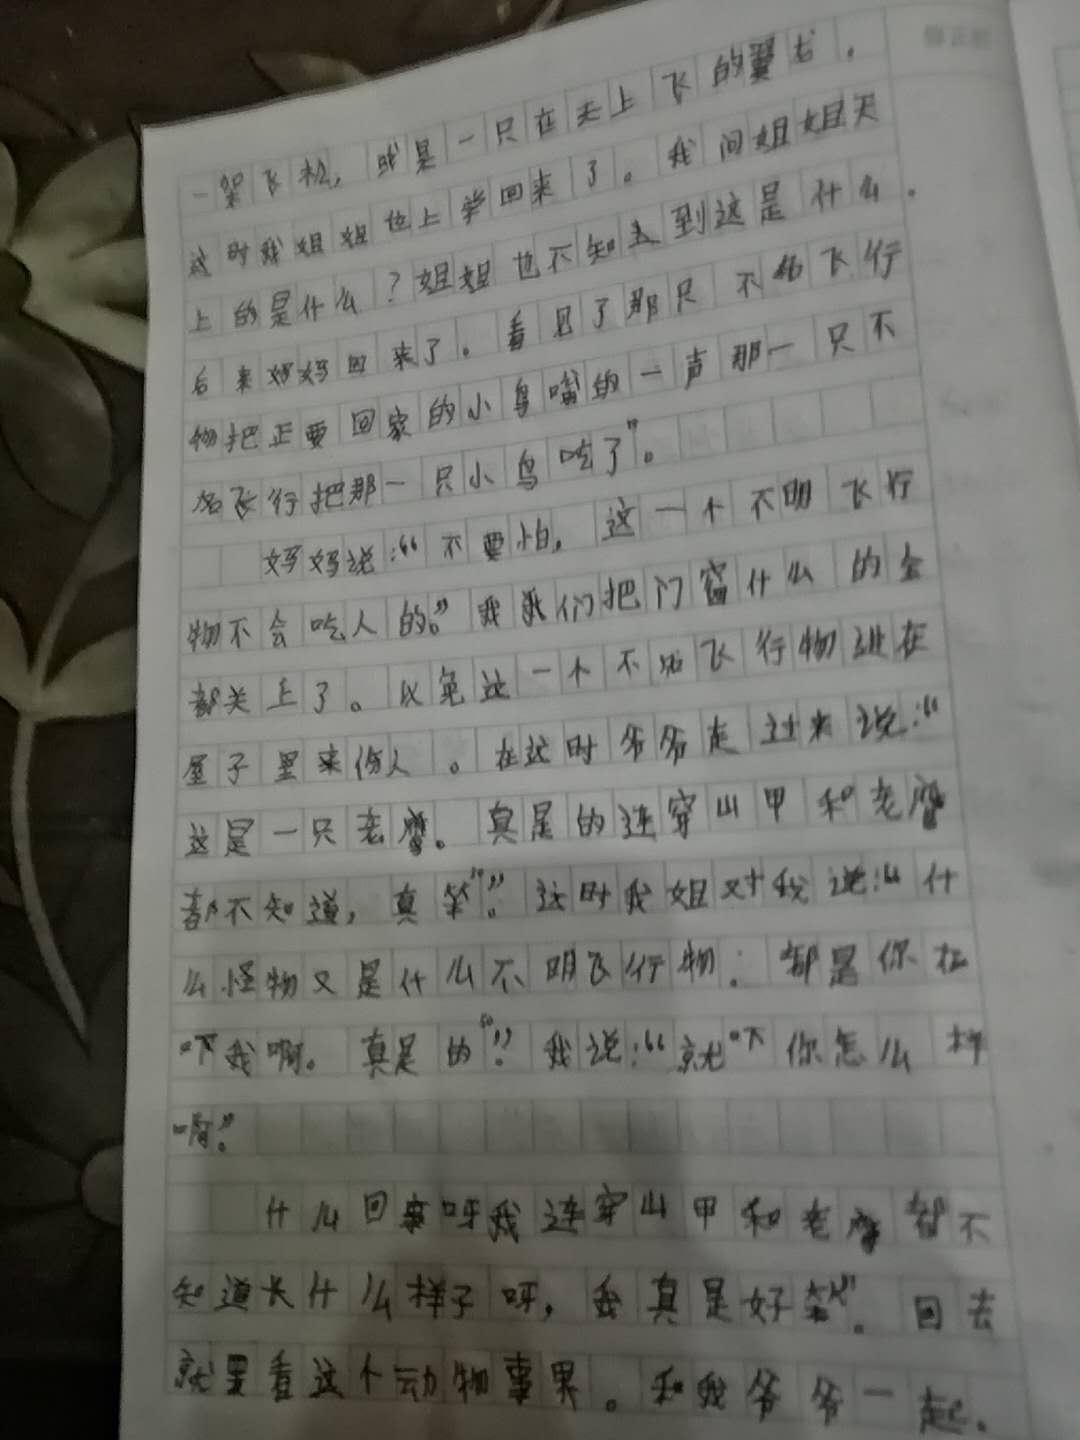 一架飞机，或是一只在天上飞的翼龙．
这时我姐姐也上学回来了。我问姐姐天
上的是什么？姐姐也不知到这是什么．
后来妈妈回来了。看见了那只不明飞行
物把正要回家的小鸟嗡的一声那一只不
明飞行把那一只小鸟吃了”。
妈妈说：“不要怕，这一个不明飞行
物不会吃人的。”我我们把门窗什么的全
都关上了。以免这一个不明飞行物进在
屋子里来伤人。在这时爷爷走过来说：“
这是一只老鹰。真是的连穿山甲和老鹰
都不知道，真笨”。这时我姐对我说：“什
么怪物又是什么不明飞行物．都是你在
吓我啊。真是的”。我说：“就吓你怎么样
啊。”
什么回事呀我连穿山甲和老鹰都不
知道长什么样子呀，我真是好笨”．回去
就要看这个动物事界。和我爷爷一起．